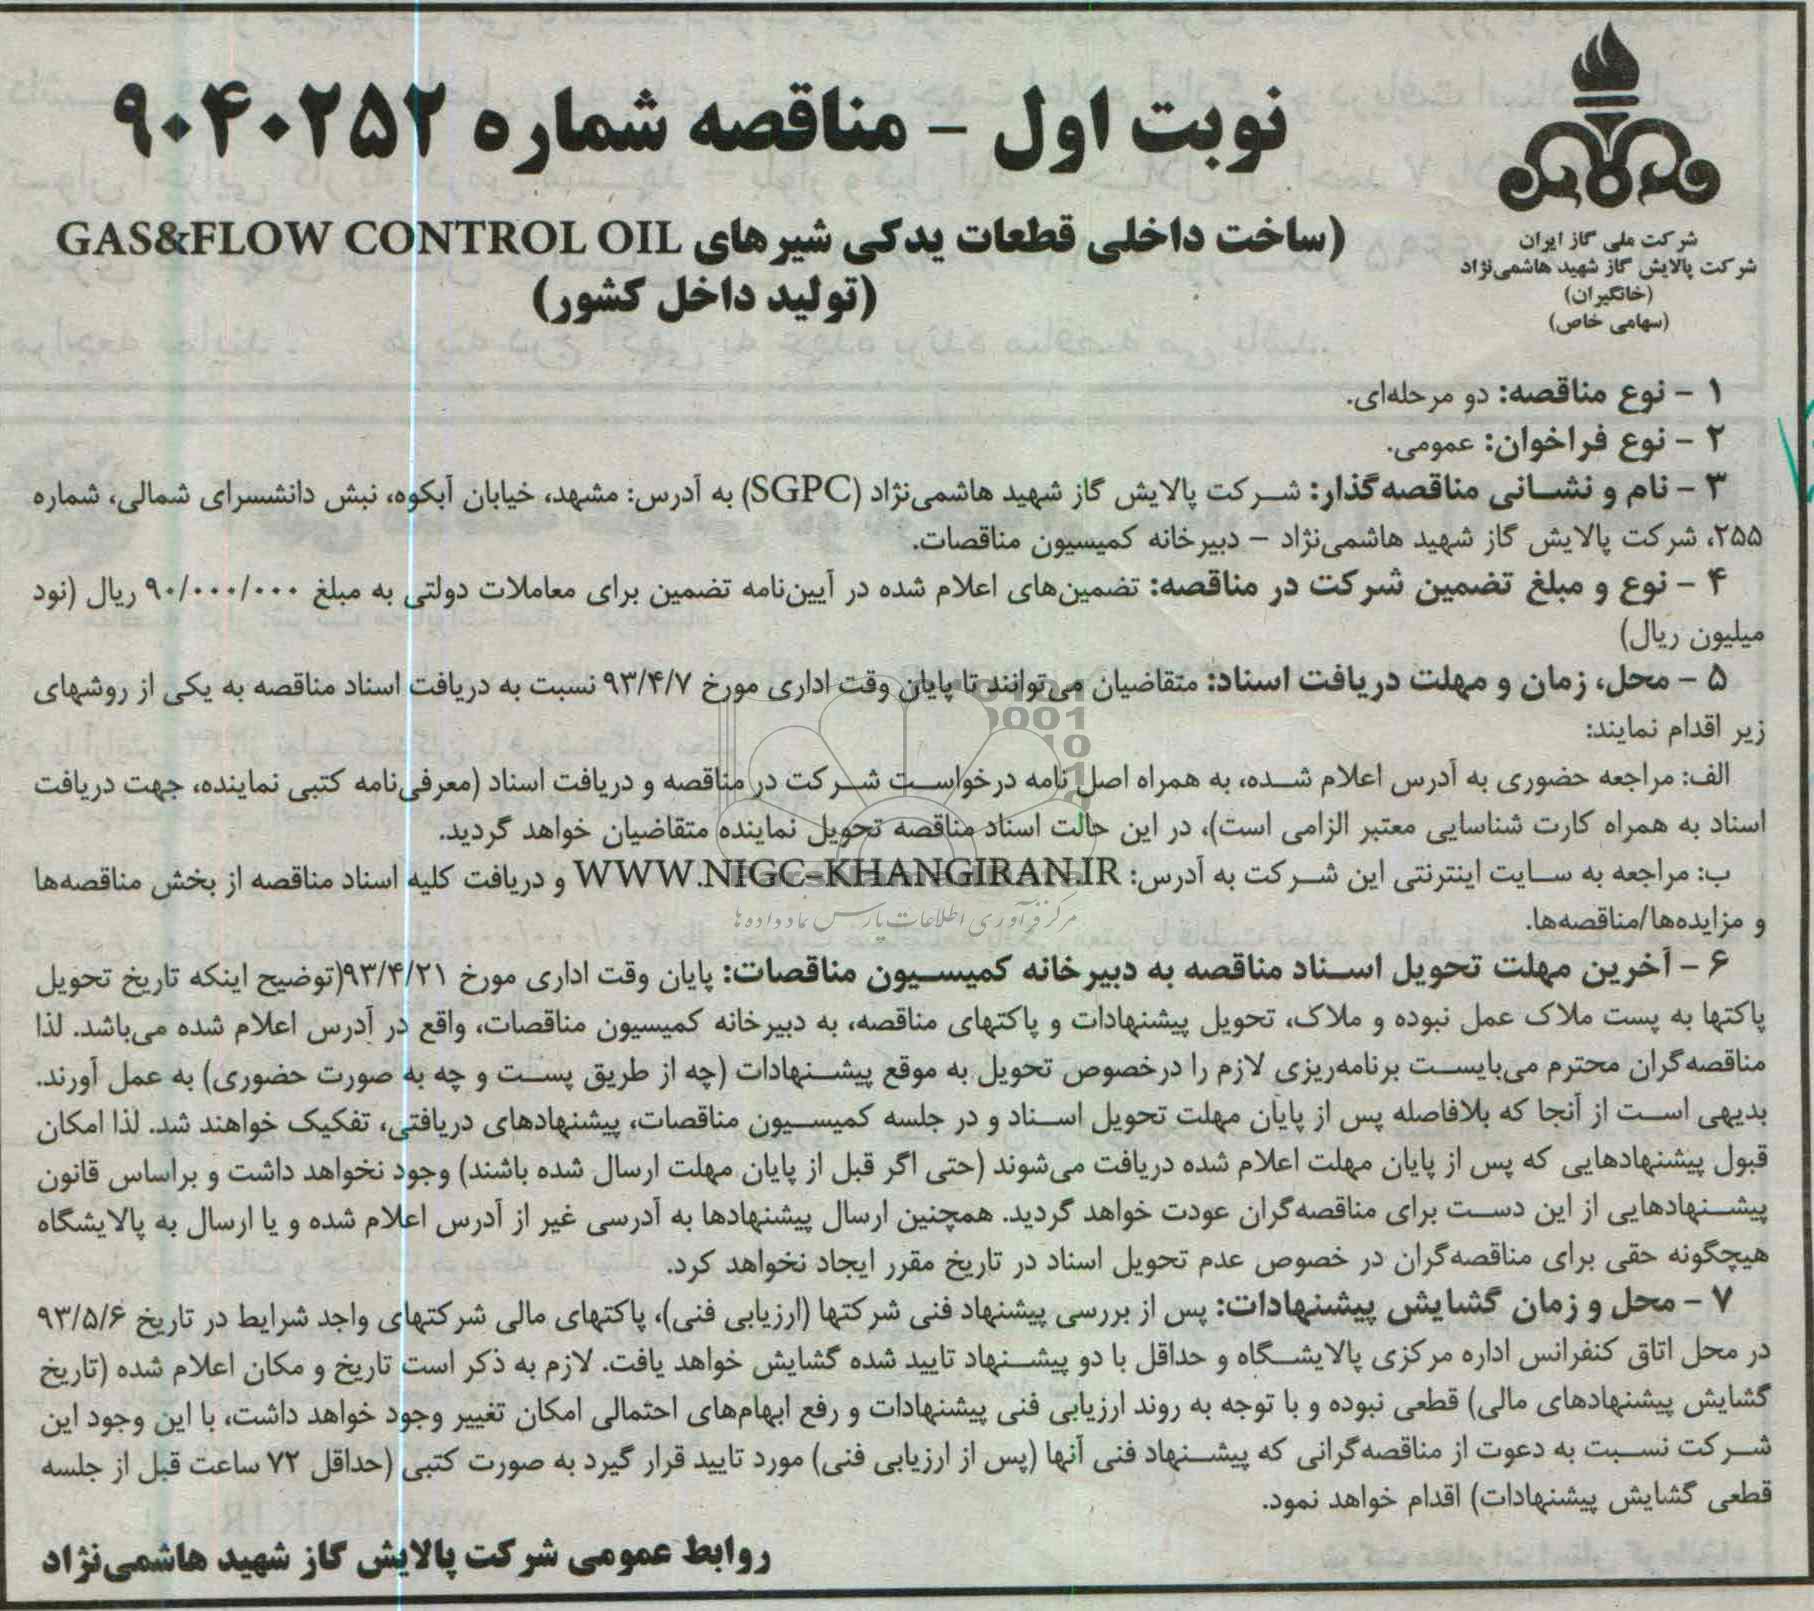 نوبت اول - مناقصه شماره ۹۰۴۰۲۵۲
(ساخت داخلی قطعات یدکی شیرهای GAS&FLOW CONTROL OIL
(تولید داخل کشور)
شرکت ملی گاز ایران
شرکت پالایش گاز شهید هاشمی‌نژاد
(خانگیران)
(سهامی خاص)
۱ - نوع مناقصه: دو مرحله‌ای.
۲ - نوع فراخوان: عمومی.
۳ - نام و نشانی مناقصه‌گذار: شرکت پالایش گاز شهید هاشمی‌نژاد (SGPC) به آدرس: مشهد، خیابان آبکوه، نبش دانشسرای شمالی، شماره
۲۵۵، شرکت پالایش گاز شهید هاشمی‌نژاد – دبیرخانه کمیسیون مناقصات.
۴ - نوع و مبلغ تضمین شرکت در مناقصه: تضمین‌های اعلام شده در آیین‌نامه تضمین برای معاملات دولتی به مبلغ ۹۰/۰۰۰/۰۰۰ ریال (نود
میلیون ریال)
۵ - محل، زمان و مهلت دریافت اسناد: متقاضیان می‌توانند تا پایان وقت اداری مورخ ۹۳/۴/۷ نسبت به دریافت اسناد مناقصه به یکی از روشهای
زیر اقدام نمایند:
الف: مراجعه حضوری به آدرس اعلام شده، به همراه اصل نامه درخواست شرکت در مناقصه و دریافت اسناد (معرفی‌نامه کتبی نماینده، جهت دریافت
اسناد به همراه کارت شناسایی معتبر الزامی است)، در این حالت اسناد مناقصه تحویل نماینده متقاضیان خواهد گردید.
ب: مراجعه به سایت اینترنتی این شرکت به آدرس: WWW.NIGC-KHANGIRAN.IR و دریافت کلیه اسناد مناقصه از بخش مناقصه‌ها
و مزایده‌ها/مناقصه‌ها.
مرکز فرآوری اطلاعات پارس نماد داده‌ها
۶ - آخرین مهلت تحویل اسناد مناقصه به دبیرخانه کمیسیون مناقصات: پایان وقت اداری مورخ ۹۳/۴/۲۱(توضیح اینکه تاریخ تحویل
پاکتها به پست ملاک عمل نبوده و ملاک، تحویل پیشنهادات و پاکتهای مناقصه، به دبیرخانه کمیسیون مناقصات، واقع در آدرس اعلام شده می‌باشد. لذا
مناقصه‌گران محترم می‌بایست برنامه‌ریزی لازم را درخصوص تحویل به موقع پیشنهادات (چه از طریق پست و چه به صورت حضوری) به عمل آورند.
بدیهی است از آنجا که بلافاصله پس از پایان مهلت تحویل اسناد و در جلسه کمیسیون مناقصات، پیشنهادهای دریافتی، تفکیک خواهند شد. لذا امکان
قبول پیشنهادهایی که پس از پایان مهلت اعلام شده دریافت می‌شوند (حتی اگر قبل از پایان مهلت ارسال شده باشند) وجود نخواهد داشت و براساس قانون
پیشنهادهایی از این دست برای مناقصه‌گران عودت خواهد گردید. همچنین ارسال پیشنهادها به آدرسی غیر از آدرس اعلام شده و یا ارسال به پالایشگاه
هیچگونه حقی برای مناقصه‌گران در خصوص عدم تحویل اسناد در تاریخ مقرر ایجاد نخواهد کرد.
۷ - محل و زمان گشایش پیشنهادات: پس از بررسی پیشنهاد فنی شرکتها (ارزیابی فنی)، پاکتهای مالی شرکتهای واجد شرایط در تاریخ ۹۳/۵/۶
در محل اتاق کنفرانس اداره مرکزی پالایشگاه و حداقل با دو پیشنهاد تایید شده گشایش خواهد یافت. لازم به ذکر است تاریخ و مکان اعلام شده (تاریخ
گشایش پیشنهادهای مالی) قطعی نبوده و با توجه به روند ارزیابی فنی پیشنهادات و رفع ابهام‌های احتمالی امکان تغییر وجود خواهد داشت، با این وجود این
شرکت نسبت به دعوت از مناقصه‌گرانی که پیشنهاد فنی آنها (پس از ارزیابی فنی) مورد تایید قرار گیرد به صورت کتبی (حداقل ۷۲ ساعت قبل از جلسه
قطعی گشایش پیشنهادات) اقدام خواهد نمود.
روابط عمومی شرکت پالایش گاز شهید هاشمی‌نژاد